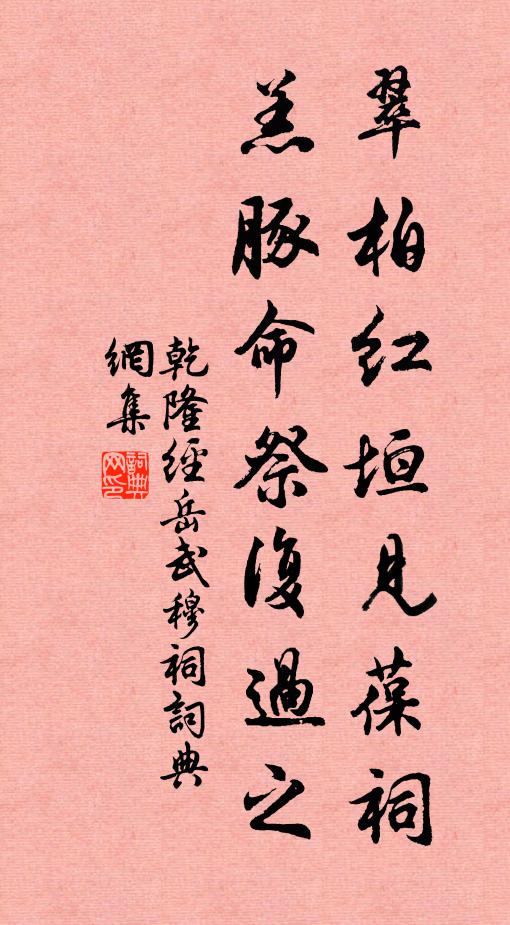 翠柏紅垣見葆祠
羔豚命祭復過之
乾隆經岳武穆祠詞典
網集
詞典網印